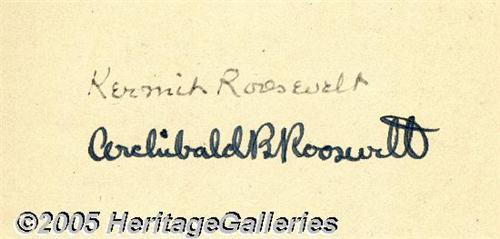 Kermit Roosevelt
Archibald B Roosevelt
©2005 HeritageGalleries